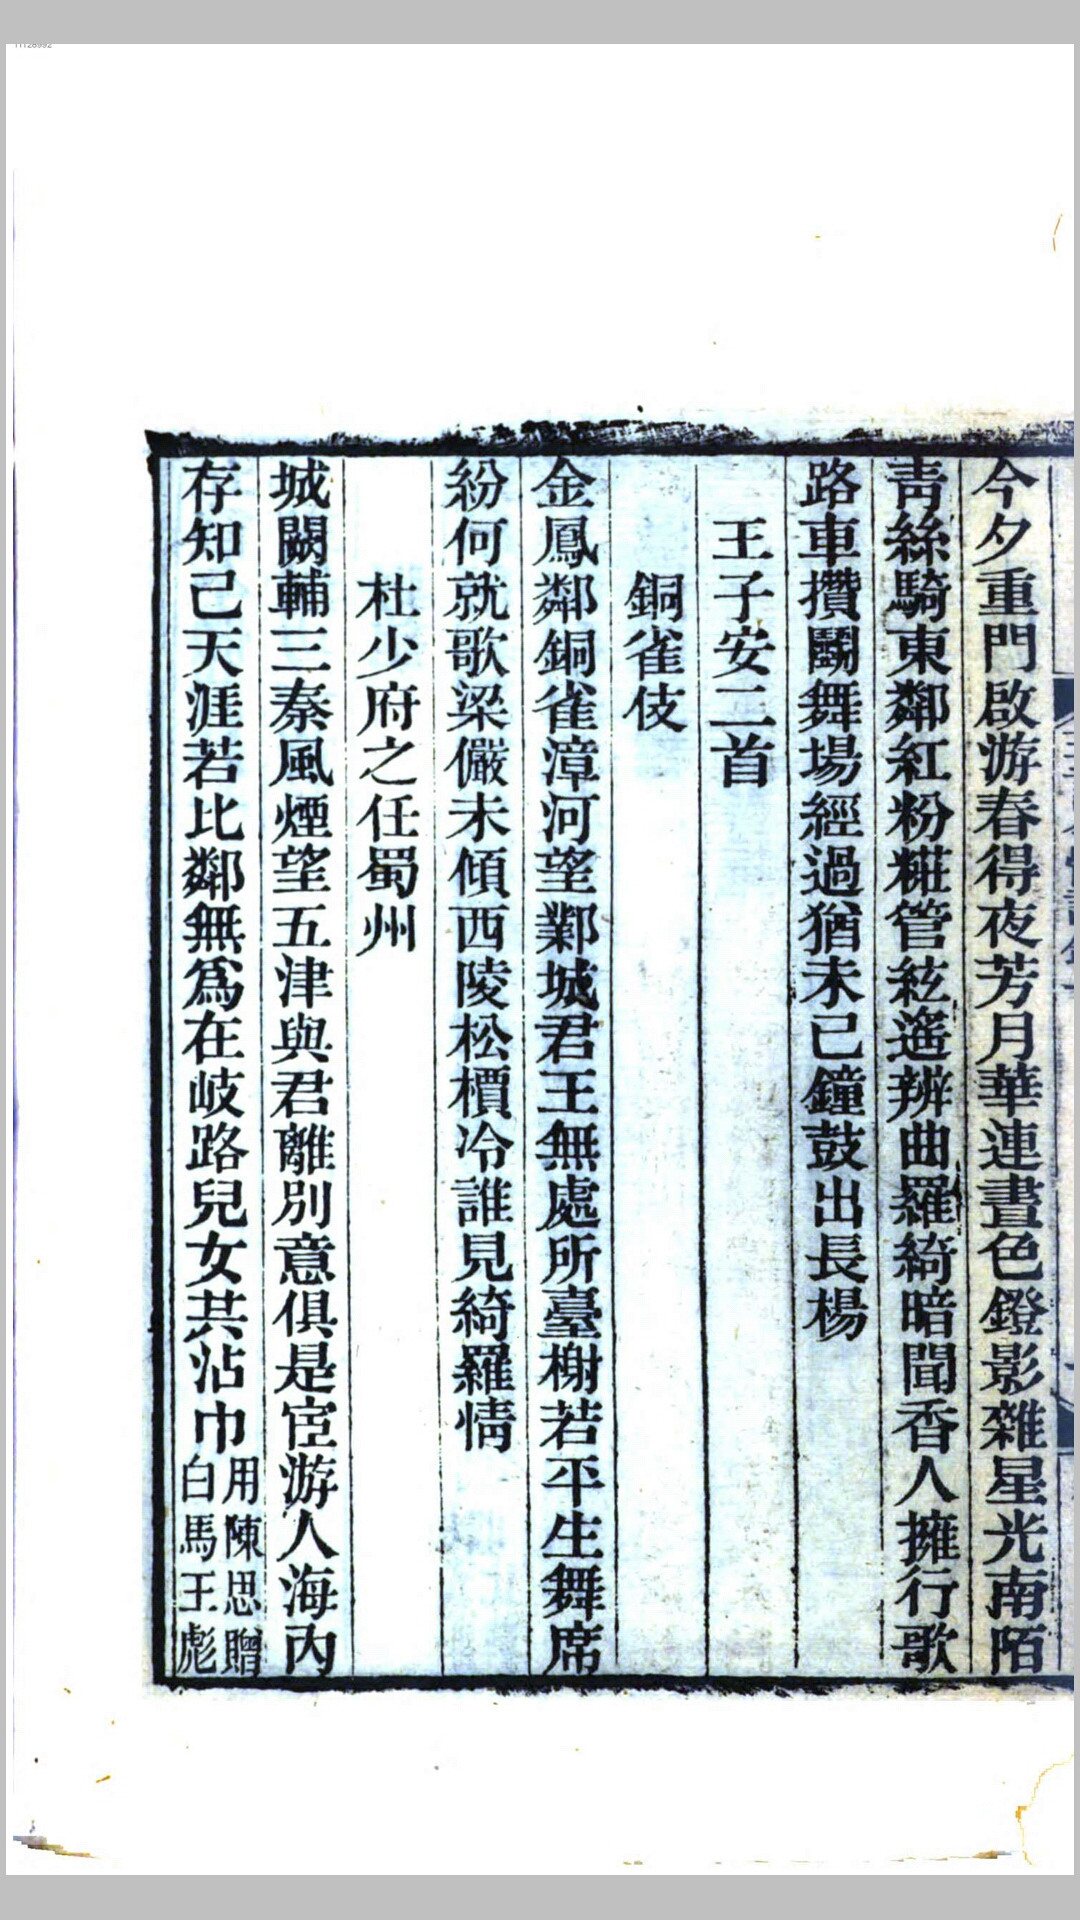 今夕重門啟游春得夜芳月華連晝色鐙影雜星光南陌
靑絲騎東鄰紅粉糚管絃遙辨曲羅綺暗聞香人擁行歌
路車攢鬭舞場經過猶未已鐘鼓出長楊
王子安二首
銅雀伎
金鳳鄰銅雀漳河望鄴城君王無處所臺榭若平生舞席
紛何就歌梁儼未傾西陵松檟冷誰見綺羅情
杜少府之任蜀州
城闕輔三秦風煙望五津與君離別意俱是宦游人海內
存知己天涯若比鄰無爲在岐路兒女共沾巾
用陳思贈
白馬王彪